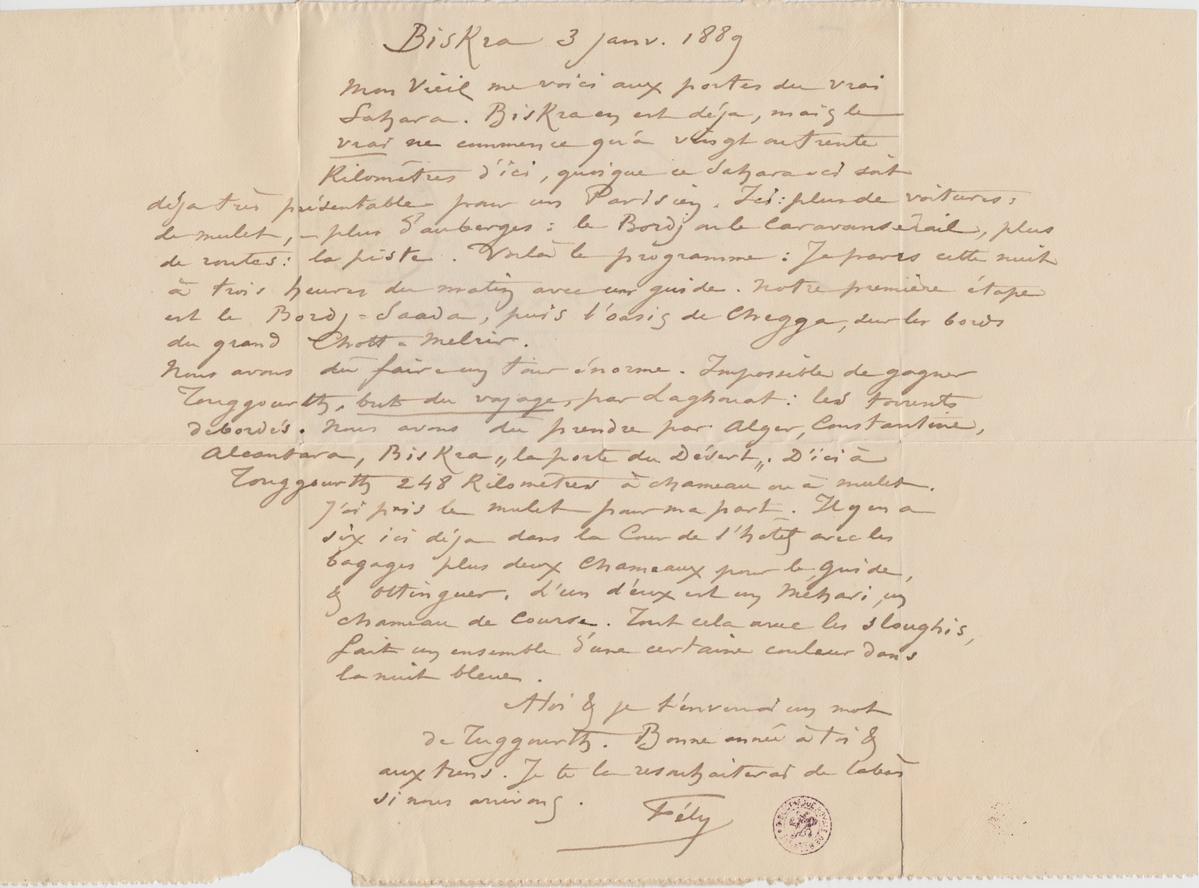 Biskra 3 janv. 1889
Mon Vieil me voici aux portes du vrai
Sahara. Biskra en est déja, mais le
vrai ne commence qu'à vingt ou trente
Kilomètres d'ici, quoique ce Sahara-ci soit
déja très présentable pour un Parisien. Ici: plus de voitures:
le mulet, - plus d'auberges: le Bordj ou le Caravansérail, plus
de routes: la piste. Voilà le programme: Je pars cette nuit
à trois heures du matin avec un guide. Notre première étape
est le Bordj-Saada, puis l'oasis de Chegga, sur les bords
du grand Chott-Melrir.
Nous avons dû faire un tour énorme. Impossible de gagner
Touggourth, but du voyage, par Laghouat: les torrents
débordés. Nous avons dû prendre par Alger, Constantine,
Alcantara, Biskra „la porte du Désert„. D'ici à
Touggourth 248 Kilomètres à chameau ou à mulet.
J'ai pris le mulet pour ma part. Il y en a
six ici déja dans la Cour de l'hôtel avec les
bagages plus deux chameaux pour le guide,
& Ottinguer. L'un d'eux est un Méhari, un
chameau de course. Tout cela avec les sloughis,
fait un ensemble d'une certaine couleur dans
la nuit bleue.
A toi & je t'enverrai un mot
de Tuggourth. Bonne année à toi &
aux tiens. Je te la resouhaiterai de labas
si nous arrivons.
Fély